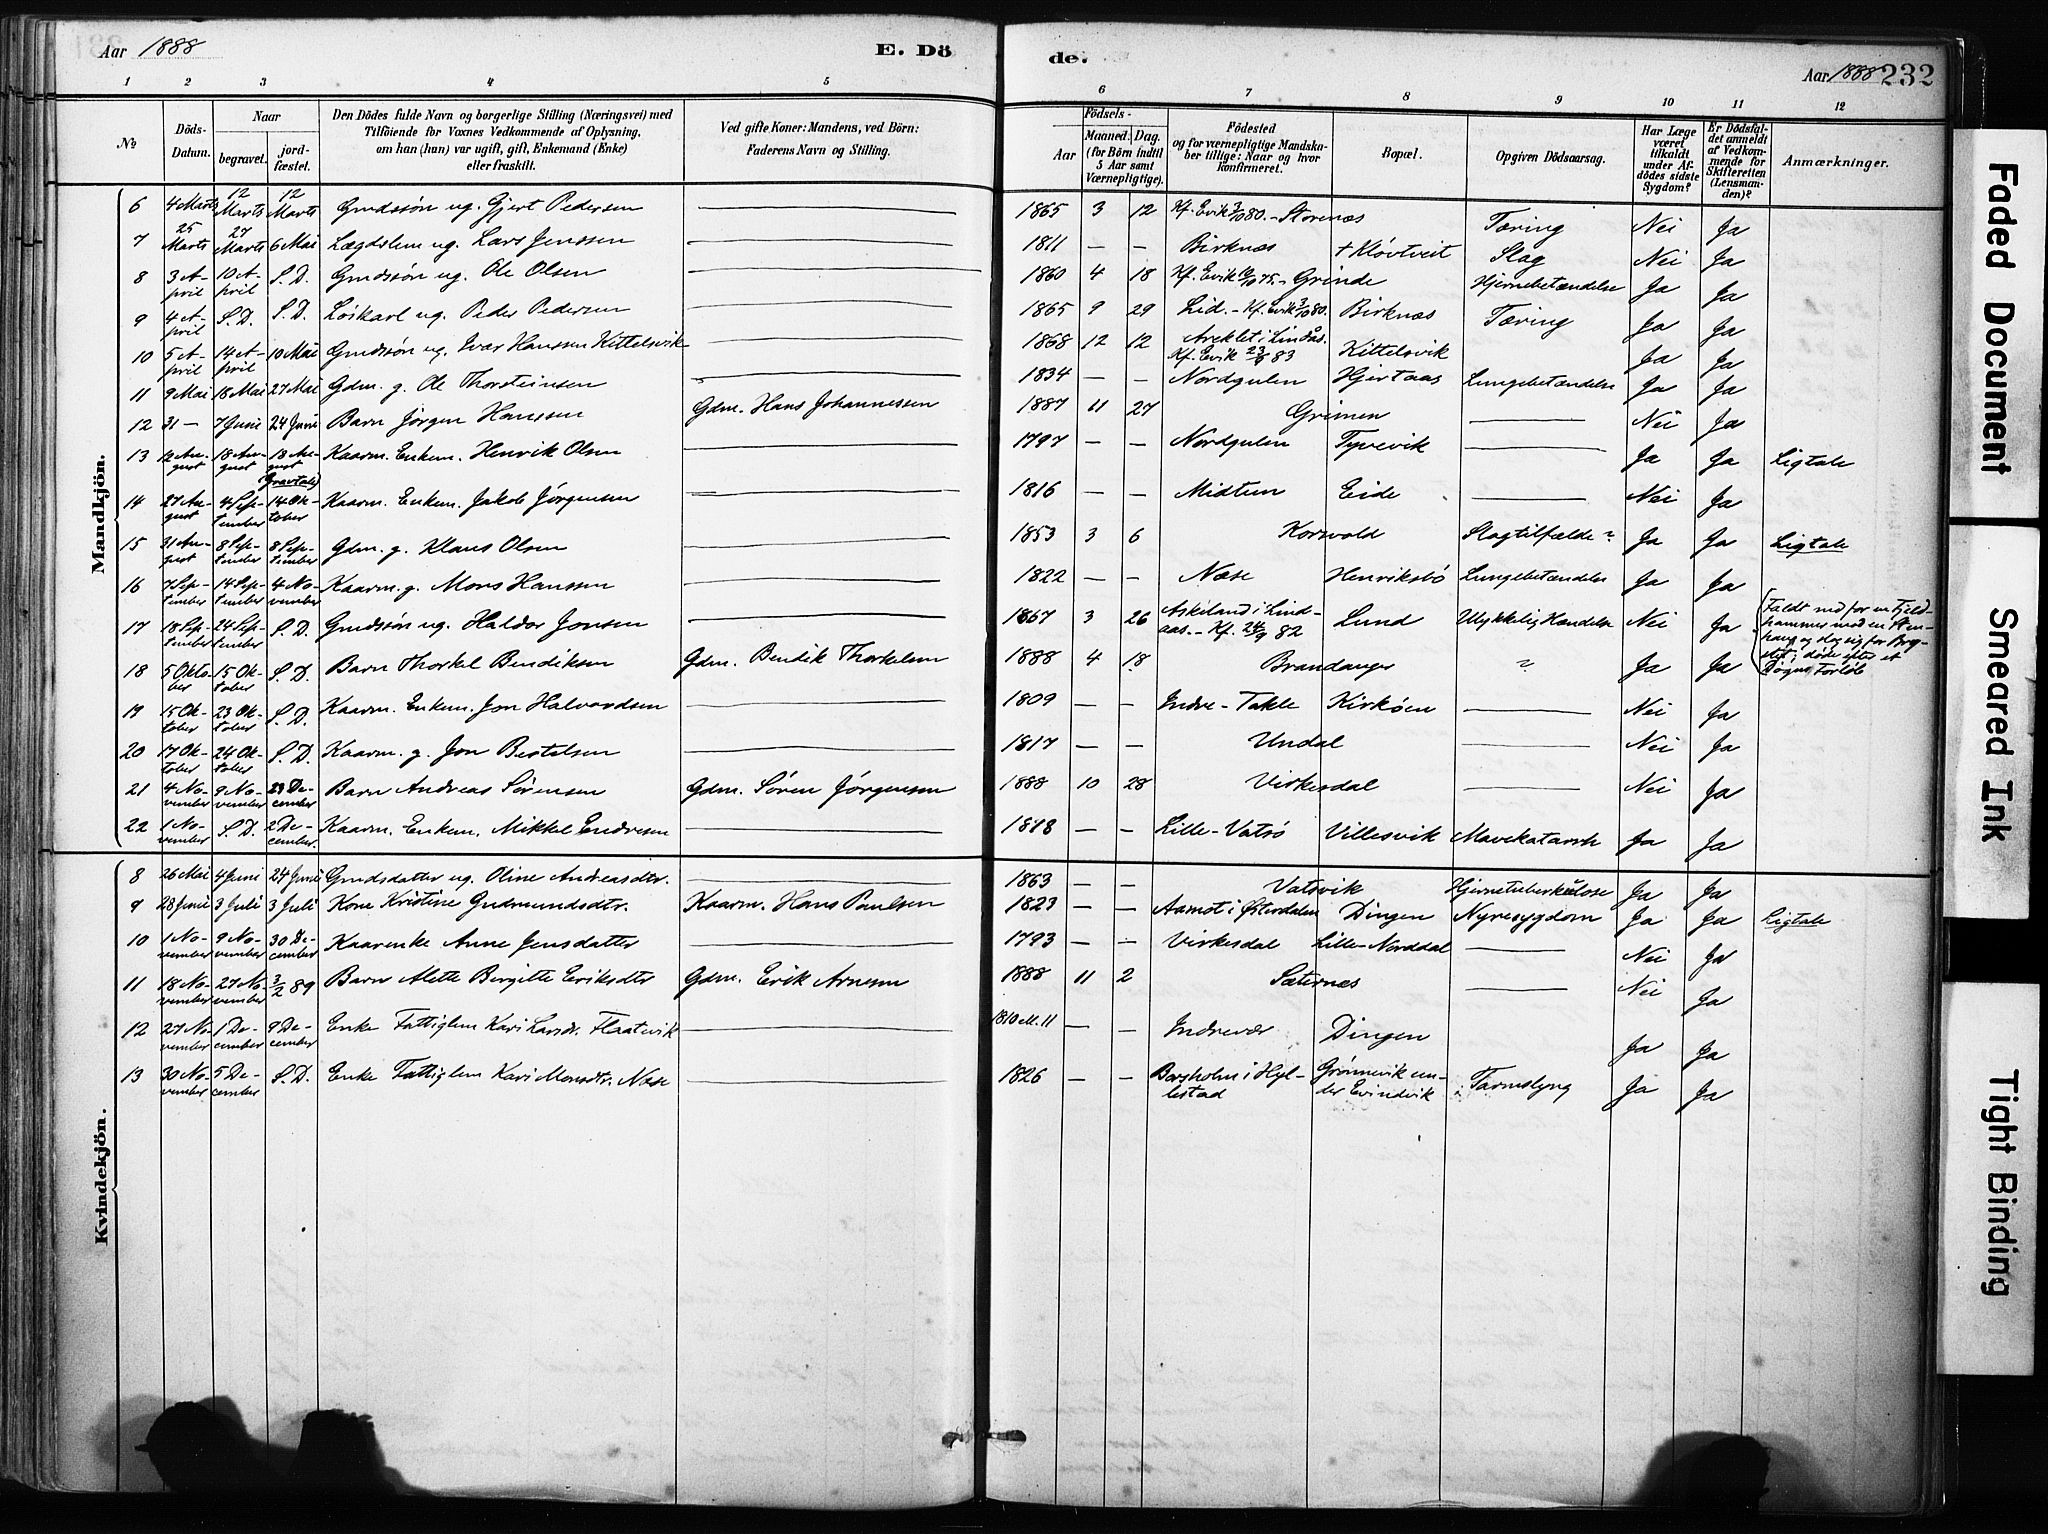 Aar 1888 E. Dö de. Aar 1888 232
1 2 3 4 5 6 7 8 9 10 11 12
No Döds-Datum. Naar begravet. jordfæstet. Den Dödes fulde Navn og borgerlige Stilling (Næringsvei) med Tilföiende for Voxnes Vedkommende af Oplysning, om han (hun) var ugift, gift, Enkemand (Enke) eller fraskilt. Ved gifte Koner: Mandens, ved Börn: Faderens Navn og Stilling. Födsels- Aar Maaned. Dag. (for Börn indtil 5 Aar samt Værnepligtige). Födested og for værnepligtige Mandskaber tillige: Naar og hvor konfirmeret. Bopæl. Opgiven Dödsaarsag. Har Læge været tilkaldt under Afdödes sidste Sygdom? Er Dödsfaldet anmeldt af Vedkommende for Skifteretten (Lensmanden)? Anmærkninger.
Mandkjön.
6 4 Marts 12 Marts 12 Marts Gmdssøn ug. Gjert Pedersen — 1865 3 12 Kf. Evik 3/10 80. - Storenæs Tæring Nei Ja
7 25 Marts 27 Marts 6 Mai Lægdslem ug. Lars Jenssen — 1811 — — Birknæs + Kløvtveit Slag Nei Ja
8 3 April 10 April S. D. Gmdssøn ug. Ole Olsen — 1860 4 18 Kf. Evik 10/10 75. - Grinde Hjernebetændelse Ja Ja
9 4 April S. D. S. D. Løskarl ug. Peder Pedersen — 1865 9 29 Lid. - Kf. Evik 3/10 80. Birknæs Tæring Ja Ja
10 5 April 14 April 10 Mai Gmdssøn ug. Ivar Hanssen Kittelsvik — 1868 12 12 Areklet i Lindås. Kf. Evik 23/9 83 Kittelsvik Ja Ja
11 9 Mai 18 Mai 27 Mai Gdm. g. Ole Thorsteinsen — 1834 — — Nordgulen Hjertaas Lungebetændelse Ja Ja
12 31 — 7 Juni 24 Juni Barn Jørgen Hanssen Gdm. Hans Johannessen 1887 11 27 Grimen — Nei Ja
13 12 August 18 August 18 August (Gravtale) Kaarm. Enkem. Henrik Olsen — 1797 — — Nordgulen Tyvevik — Ja Ja Ligtale
14 27 August 4 September 14 Oktober Kaarm. Enkem. Jakob Jørgensen — 1816 — — Midtun Eide — Nei Ja
15 31 August 8 September 8 September Gdm. g. Klaus Olsen — 1853 3 6 Korsvold Slagtilfælde? Ja Ja Ligtale
16 7 September 14 September 4 November Kaarm. g. Mons Hanssen — 1822 — — Næse Henriksbö Lungebetændelse Ja Ja
17 18 September 24 September S. D. Gmdssøn ug. Haldor Jonsen — 1867 3 26 Askeland i Lindaas. - Kf. 24/9 82 Lund Ulykkelig Hændelse Nei Ja Faldt ned for en Fjeldhammer med en Stenhaug og slog sig for Brystet; døde efter et Døgns Forløb
18 5 Oktober 15 Oktober S. D. Barn Thorkel Bendiksen Gdm. Bendik Thorkelsen 1888 4 18 Brandanger ? Ja Ja
19 15 Oktober 23 Oktober S. D. Kaarm. Enkem. Jon Halvardsen — 1809 — — Indre-Takle Kirkøen — Nei Ja
20 17 Oktober 24 Oktober S. D. Kaarm. g. Jon Bertelsen — 1817 — — Undal — Nei Ja
21 4 November 9 November 29 December Barn Andreas Sørensen Gdm. Søren Jørgensen 1888 10 28 Virkesdal — Nei Ja
22 1 November S. D. 2 December. Kaarm. Enkem. Mikkel Endresen — 1818 — — Lille-Vatsö Villesvik Mavekatarrh Ja Ja
Kvindekjön.
8 26 Mai 4 Juni 24 Juni Gmdsdatter ug. Oline Andreasdtr. — 1863 — — Vatsvik Hjernetuberkulose Ja Ja
9 28 Juni 3 Juli 3 Juli Kone Kristine Gudmundsdtr. Kaarm. Hans Paulsen 1823 — — Aamot i Østerdalen Dingen Nyresygdom Ja Ja Ligtale
10 1 November 9 November 30 December Kaarenke Anne Jensdatter — 1793 — — Virkesdal Lille-Norddal — Nei Ja
11 18 November 27 November 3/2 89 Barn Alette Birgitte Eriksdtr Gdm. Erik Arnesen 1888 11 2 Sæternæs — Nei Ja
12 27 November 1 December 9 December Enke Fattiglem Kari Larsdr. Flaatevik — 1810 M. 11 — — Indrevær Dingen Ja Ja
13 30 November 5 December S. D. Enke Fattiglem Kari Monsdtr. Næse — 1826 — — Borsholm i Hyllestad Grønnevik under Evindvik Tarmslyng Ja Ja
Faded Document
Smeared Ink
Tight Binding